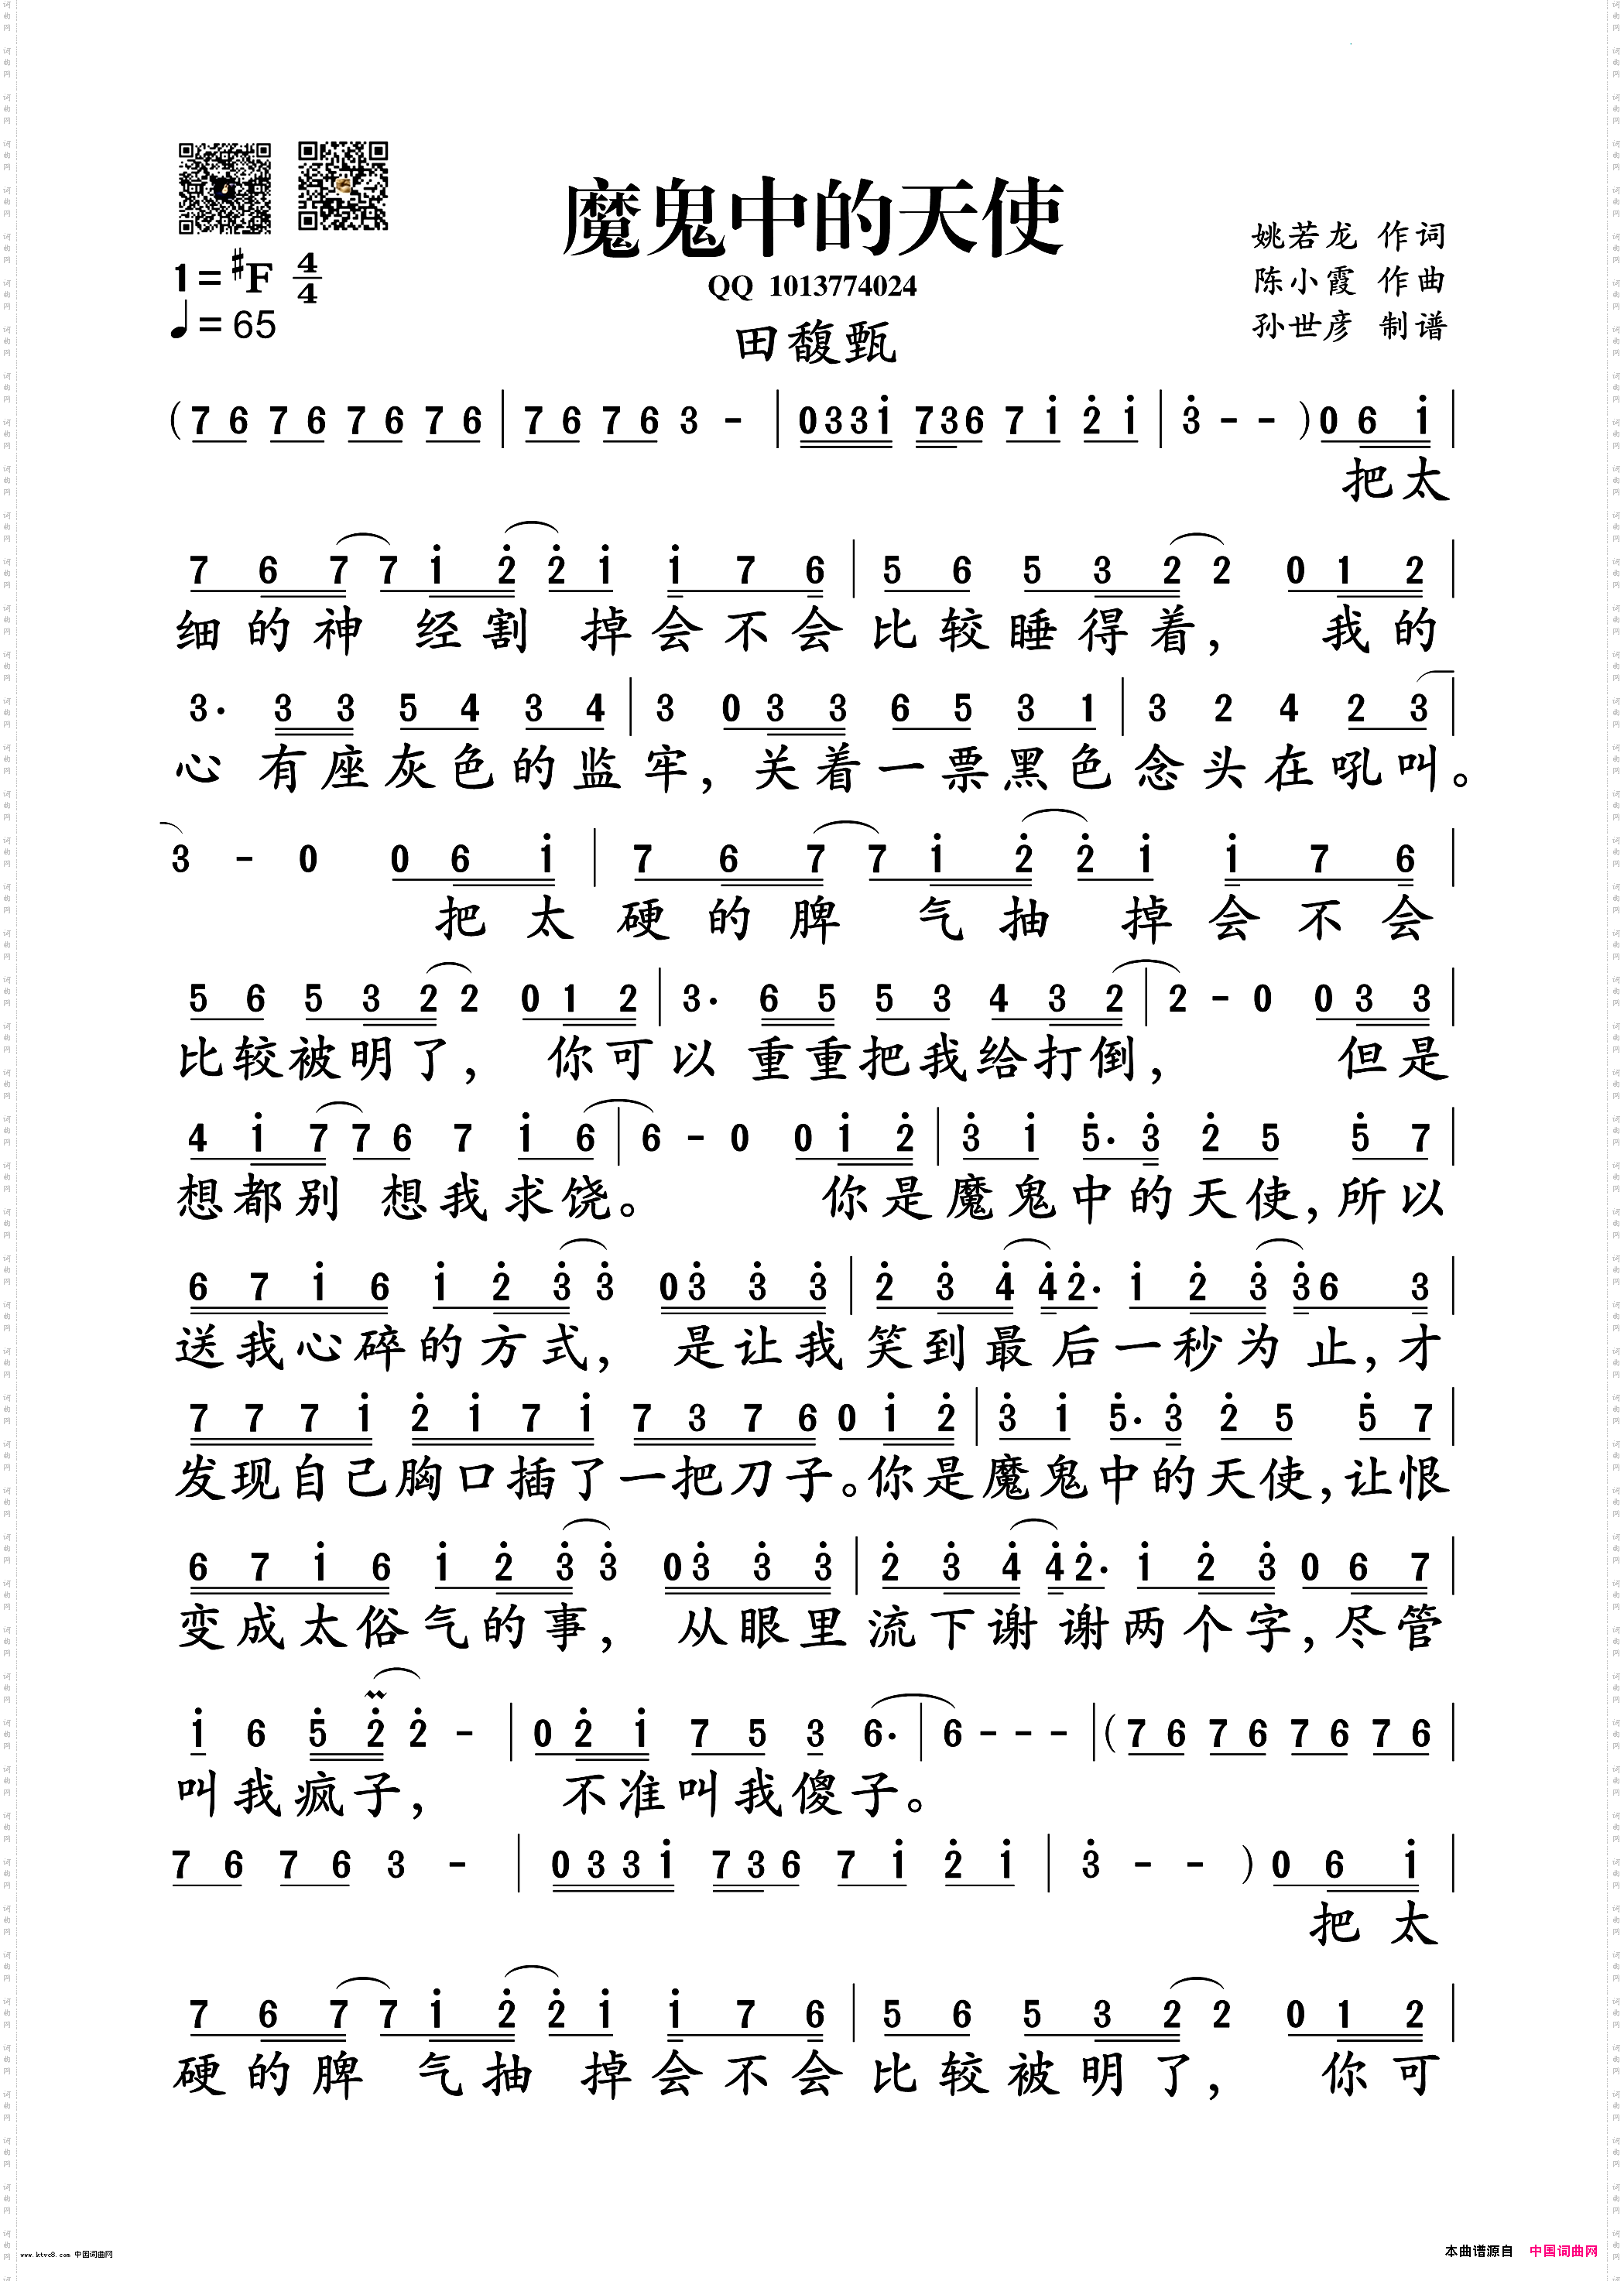 魔鬼中的天使
QQ 1013774024
田馥甄
姚若龙 作词
陈小霞 作曲
孙世彦 制谱
1=#F 4/4
♩=65
(7 6 7 6 7 6 7 6 | 7 6 7 6 3 - | 0 3 3 i 7 3 6 7 i 2̇ i | 3̇ - - ) 0 6 i |
把太
7 6 7 7 i 2̇ 2̇ i i 7 6 | 5 6 5 3 2 2 0 1 2 |
细的神 经割 掉会不会比较睡得着, 我的
3· 3 3 5 4 3 4 | 3 0 3 3 6 5 3 1 | 3 2 4 2 3 |
心 有座灰色的监牢, 关着一票黑色念头在吼叫。
3 - 0 0 6 i | 7 6 7 7 i 2̇ 2̇ i i 7 6 |
把太硬的脾 气抽 掉会不会
5 6 5 3 2 2 0 1 2 | 3· 6 5 5 3 4 3 2 | 2 - 0 0 3 3 |
比较被明了, 你可以重重把我给打倒, 但是
4 i 7 7 6 7 i 6 | 6 - 0 0 i 2̇ | 3̇ i 5̇· 3̇ 2̇ 5 5̇ 7 |
想都别 想我求饶。 你是魔鬼中的天使,所以
6 7 i 6 i 2̇ 3̇ 3̇ 0 3̇ 3̇ 3̇ | 2̇ 3̇ 4̇ 4̇ 2̇· i 2̇ 3̇ 3̇ 6 3̇ |
送我心碎的方式, 是让我笑到最后一秒为止,才
7 7 7 i 2̇ i 7 i 7 3 7 6 0 i 2̇ | 3̇ i 5̇· 3̇ 2̇ 5 5̇ 7 |
发现自己胸口插了一把刀子。你是魔鬼中的天使,让恨
6 7 i 6 i 2̇ 3̇ 3̇ 0 3̇ 3̇ 3̇ | 2̇ 3̇ 4̇ 4̇ 2̇· i 2̇ 3̇ 0 6 7 |
变成太俗气的事, 从眼里流下谢谢两个字,尽管
i 6 5̇ 2̇ 2̇ - | 0 2̇ i 7 5 3 6· | 6 - - - | (7 6 7 6 7 6 7 6 |
叫我疯子, 不准叫我傻子。
7 6 7 6 3 - | 0 3 3 i 7 3 6 7 i 2̇ i | 3̇ - - ) 0 6 i |
把太
7 6 7 7 i 2̇ 2̇ i i 7 6 | 5 6 5 3 2 2 0 1 2 |
硬的脾 气抽 掉会不会比较被明了, 你可
www.ktvc8.com 中国词曲网
本曲谱源自 中国词曲网